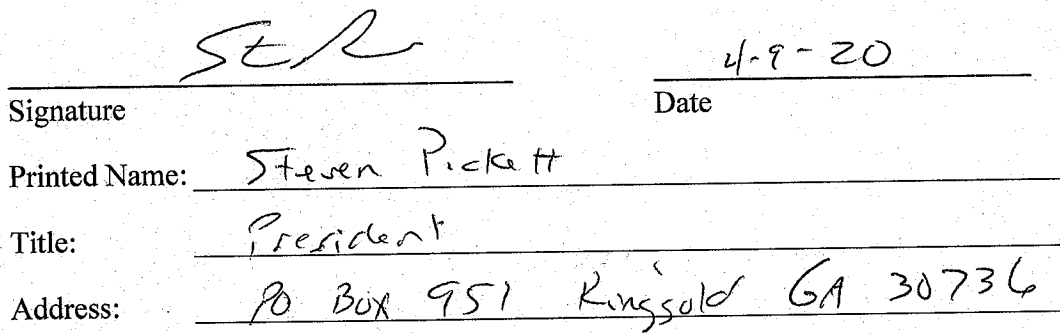 4-9-20
Signature Date
Printed Name: Steven Pickett
Title: President
Address: PO Box 951 Ringgold GA 30736